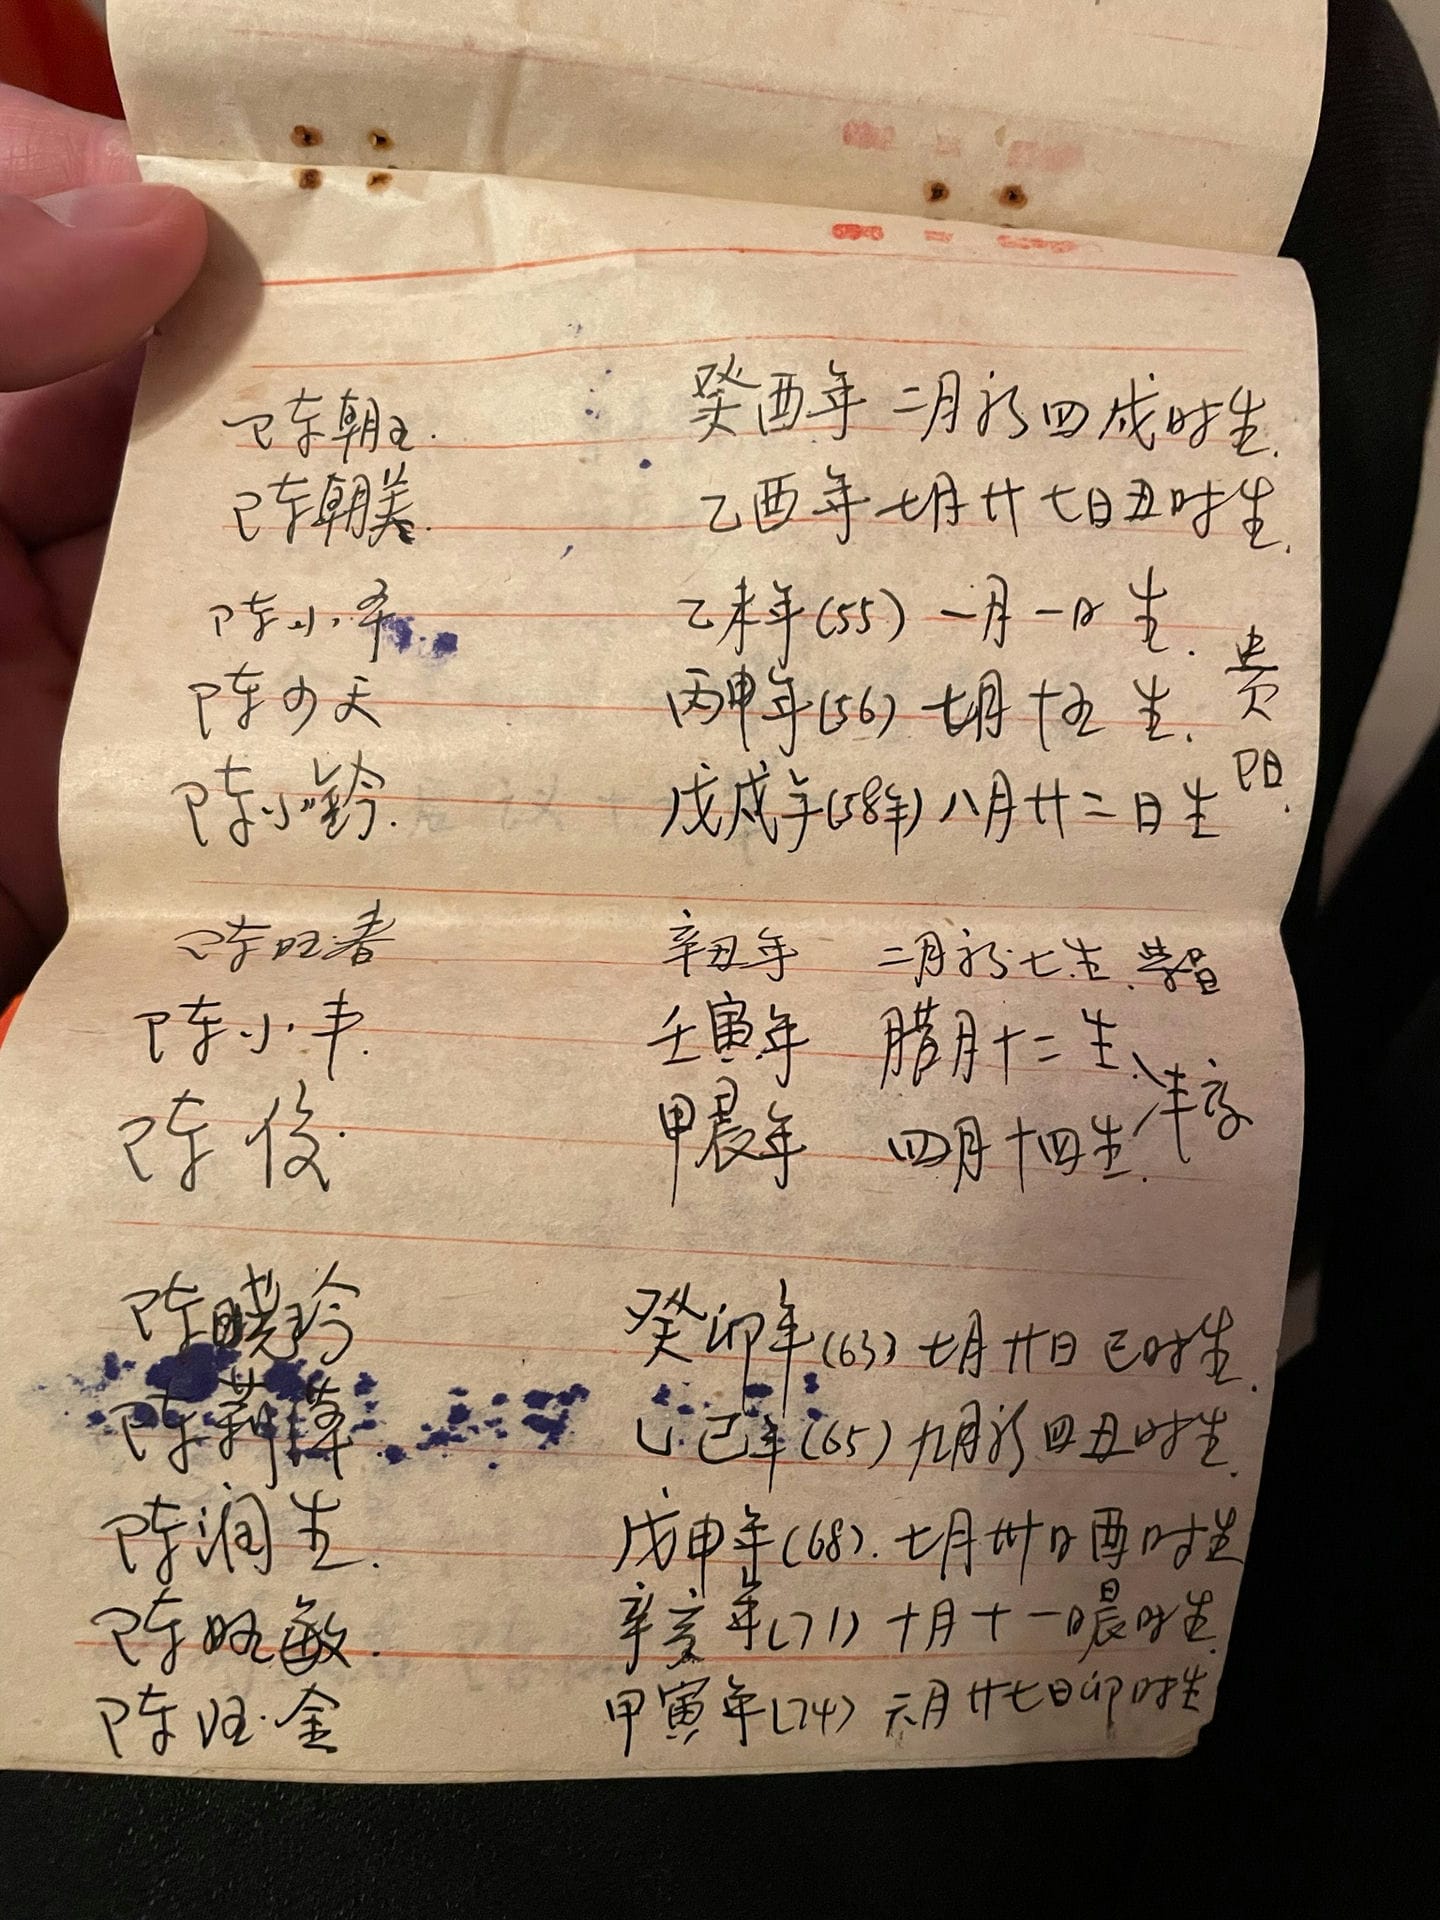 陈朝玉. 癸酉年 二月初四戌时生.
陈朝美. 乙酉年 七月廿七日丑时生.
陈小平 乙未年(55) 一月一日 生.
陈少天 丙申年(56) 七月十五 生.
贵阳.
陈小铃. 戊戌年(58年) 八月廿二日生
陈旺春 辛丑年 二月初七生.
陈小丰. 壬寅年 腊月十二生.
陈俊. 甲辰年 四月十四生.
陈晓玲 癸卯年(63) 七月廿日巳时生.
陈莉萍. 乙巳年(65) 九月初四丑时生.
陈润生. 戊申年(68). 七月卅日酉时生
陈旺敏. 辛亥年(71) 十月十一日晨时生.
陈旺金 甲寅年(74) 六月廿七日卯时生